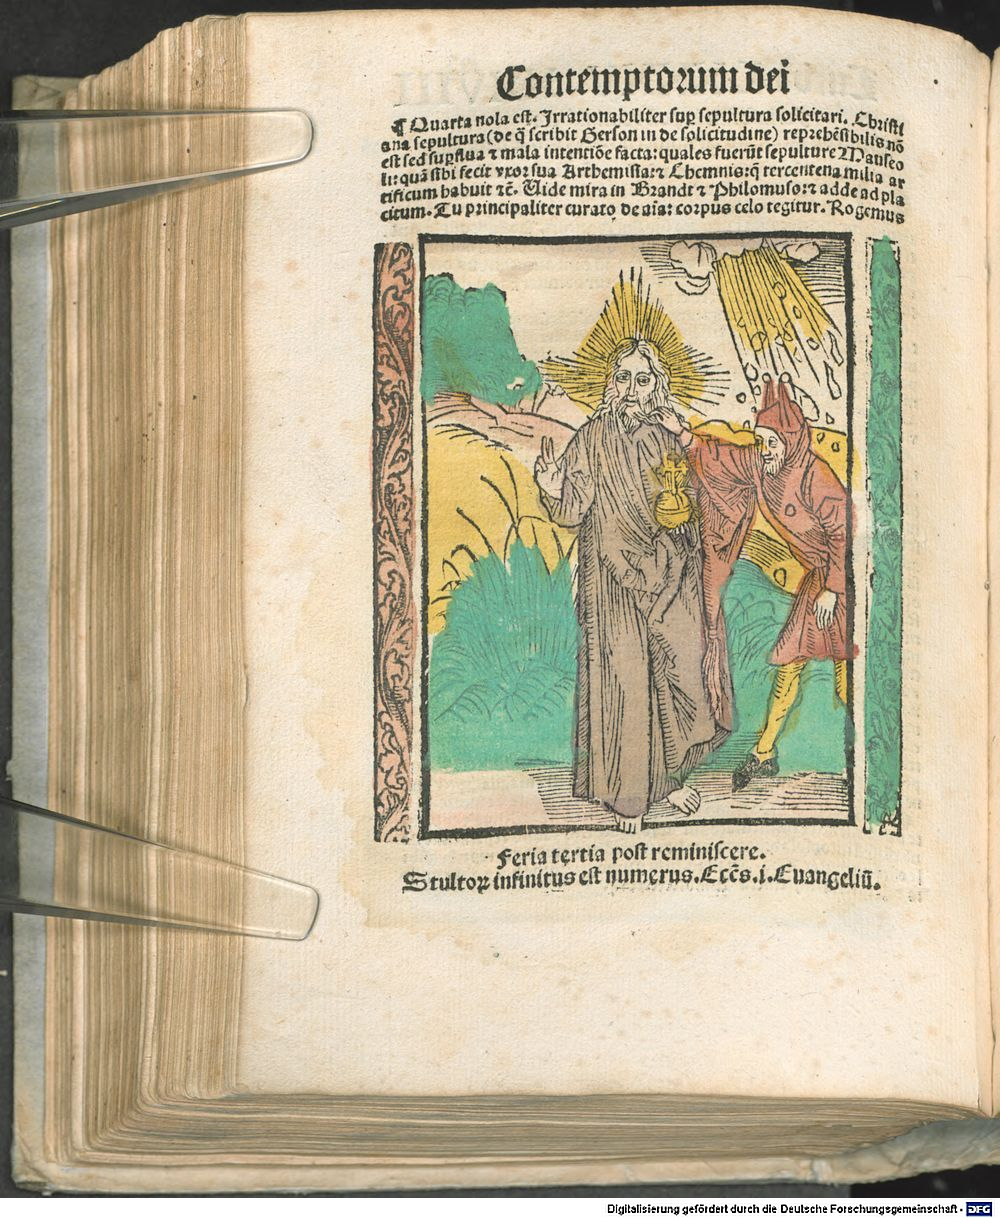 Contemptorum dei
¶ Quarta nola est. Irrationabiliter sup̱ sepultura solicitari. Christi
ana sepultura (de q̄ scribit Gerson in de solicitudine) reprehēsibilis nō
est sed sup̱flua ⁊ mala intentiōe facta: quales fuerūt sepulture Mauseo
li: quā sibi fecit vxor sua Arthemisia: ⁊ Chemnis: q̄ tercentena milia ar
tificum habuit ⁊c̄. Uide mira in Brandt ⁊ Philomuso: ⁊ adde ad pla
citum. Tu principaliter curato de aīa: corpus celo tegitur. Rogemus
Feria tertia post reminiscere.
Stultoꝝ infinitus est numerus. Eccēs. i. Euangeliū.
Digitalisierung gefördert durch die Deutsche Forschungsgemeinschaft - DFG